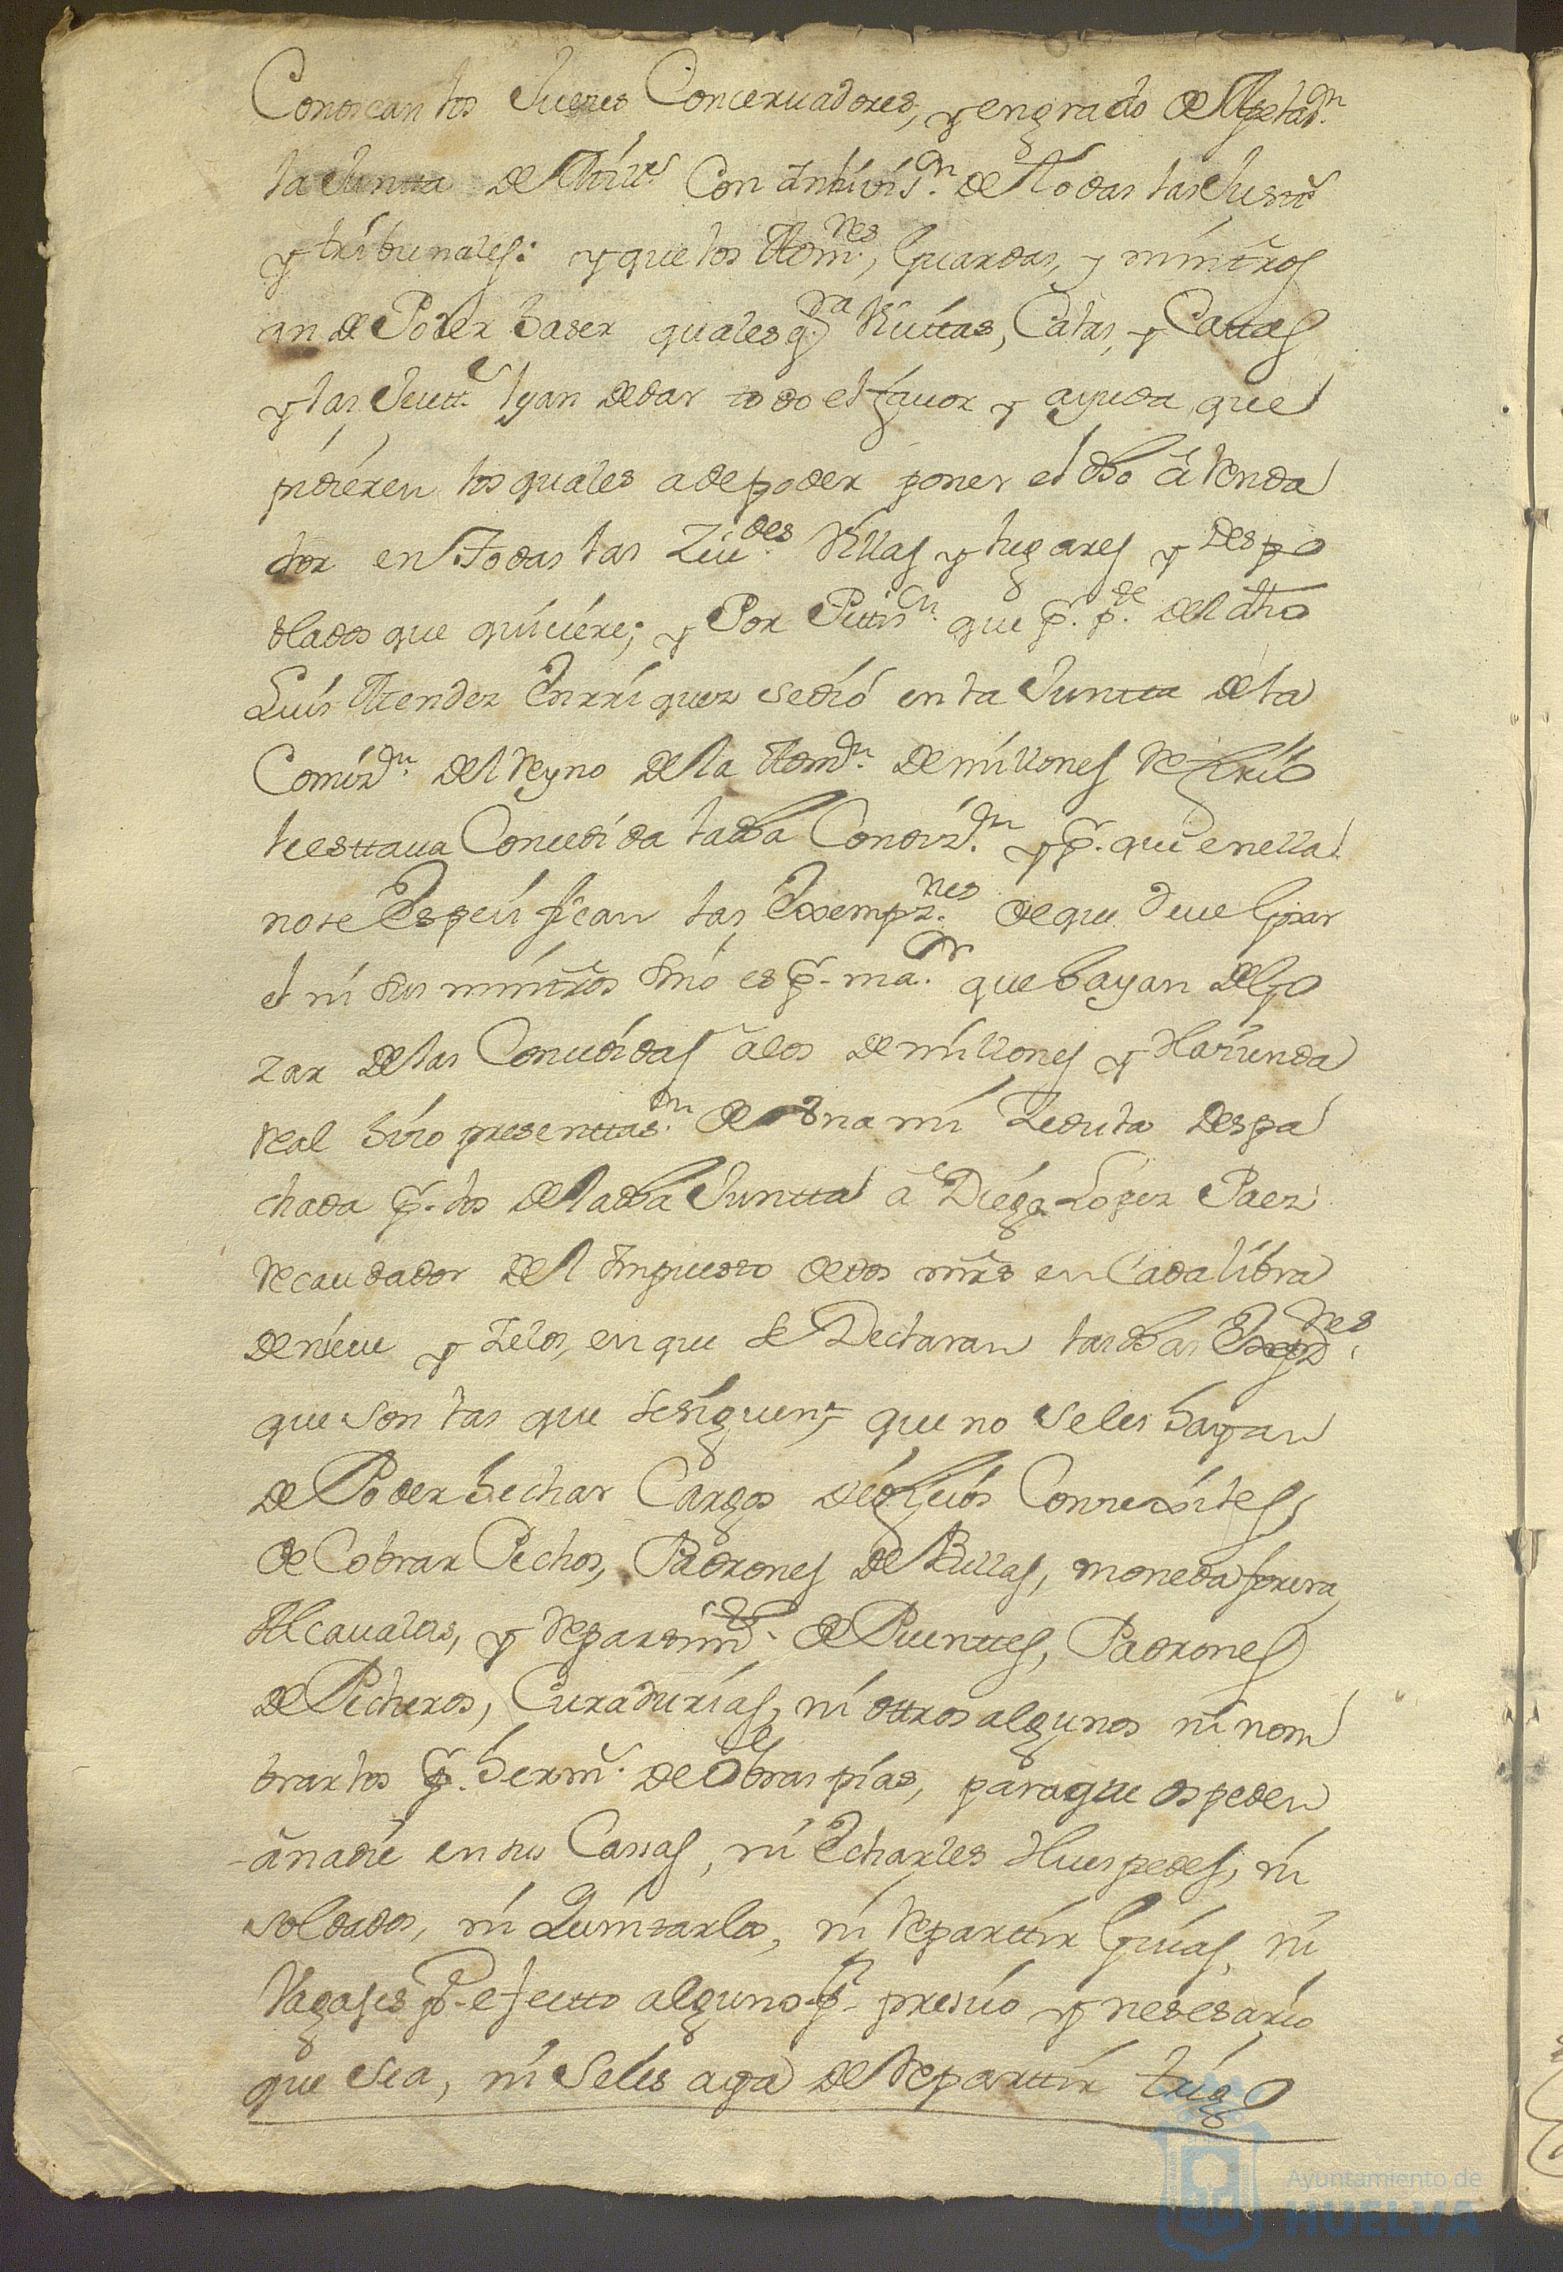 Conoscan los Jueses Conceruadores, y en grado de Apelas.on
la Juntta de Con Inhiuis.on de todas las Justs.
y tribunales: y que los Adm.res, Guardas, y ministros
an de Poder haser qualesq.ra Vicitas, Catas, y Cattas
y las Justt.s lyan de dar todo el fauor y ayuda que
pidieren los quales a de poder poner el dho arrenda
dor en todas las Ziu.des Villas y lugares y despo
blados que quiciere; y Por Petis.on que p.r p.te del dho
Luis Mendez Enrriquez se dió en la Juntta de la
Comiz.on del Reyno de la Adm.on de millones refirió
le esttaua Concedida la dha Condiz.on y p.r que en ella
no se Especifican las Exempz.nes de que deue Gosar
el ni sus ministros sino es p.r ma.or que hayan de Go
zar de las Concedidas a los de millones y Hazienda
Real hizo presenttas.on de una mi Zedula despa
chada p.r los de la dha Juntta a Diego Lopez Paez
Recaudador del Impuesto de dos mrs en Cada libra
de nieue y Zelos, en que se Declaran las dhas Exepz.nes
que son las que se siguen, que no se les hayan
de Poder hechar Cargos de ofiçios Consexiles,
de Cobrar Pechos, Padrones de Bullas, moneda forera
Alcaualas, y repartim.tos de Puenttes, Padrones
de Pecheros, Curadurias, ni ottros algunos ni nom
brarlos p.r herm.s de Obras pias, para que ospeden
a nadie en sus Cassas, ni Echarles Huespedes, ni
soldados, ni Quintarlos, ni reparttir Guias, ni
Vagajes p.r efectto alguno p.r presiso y nesesario
que sea, ni se les aga de reparttir trigo
Ayuntamiento de
HUELVA